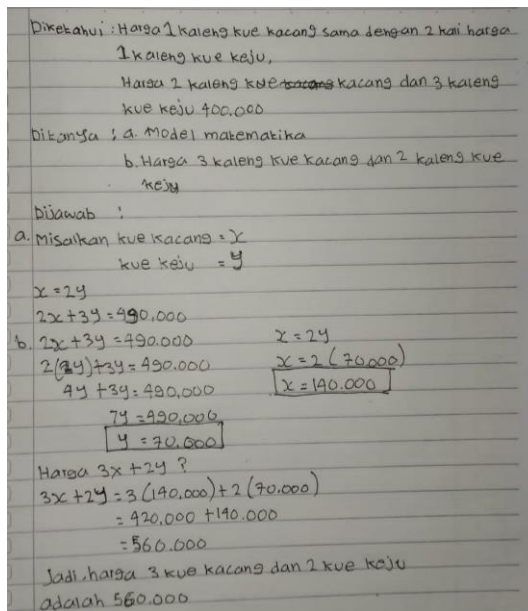 Diketahui : Harga 1 kaleng kue kacang sama dengan 2 kali harga
1 kaleng kue keju,
Harga 2 kaleng kue kacang dan 3 kaleng
kue keju 400.000
Ditanya : a. Model matematika
b. Harga 3 kaleng kue kacang dan 2 kaleng kue
keju
Dijawab :
a. Misalkan kue kacang = x
kue keju = y
x = 2y
2x + 3y = 490.000
b. 2x + 3y = 490.000
2(2y) + 3y = 490.000
4y + 3y = 490.000
7y = 490.000
y = 70.000
x = 2y
x = 2 (70.000)
x = 140.000
Harga 3x + 2y ?
3x + 2y = 3 (140.000) + 2 (70.000)
= 420.000 + 140.000
= 560.000
Jadi, harga 3 kue kacang dan 2 kue keju
adalah 560.000